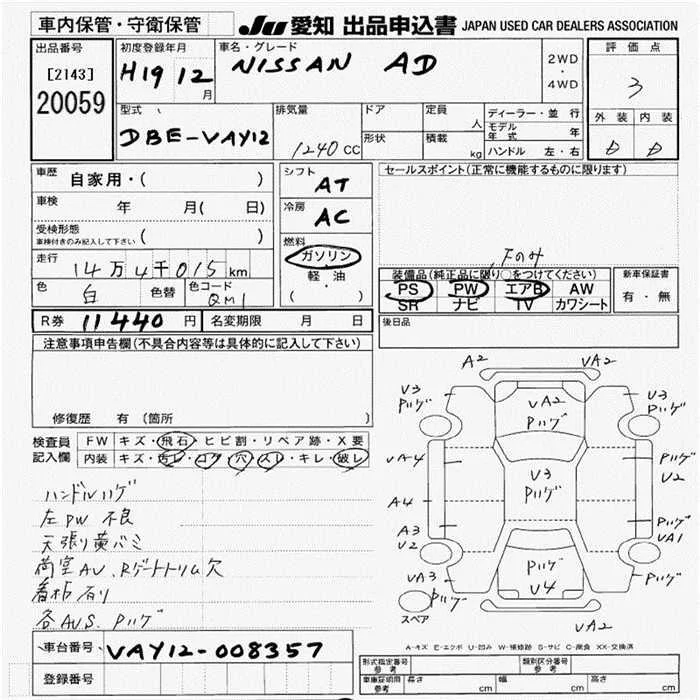 車内保管・守衛保管
JU 愛知 出品申込書 JAPAN USED CAR DEALERS ASSOCIATION
出品番号
[2143]
20059
初度登録年月
H19 12 月
車名・グレード
NISSAN AD
2WD
・
4WD
評価点
3
外装 内装
D D
型式
DBE-VAY12
排気量
1240 CC
ドア
形状
定員
人
積載
kg
ディーラー・並行
モデル年式 年
ハンドル 左・右
車歴 自家用・( )
車検 年 月( 日)
受検形態
車検付きのみ記入して下さい ( )
走行 14万4千015km
色 白 色替 色コード QM1
シフト AT
冷房 AC
燃料
ガソリン
軽・油
( )
セールスポイント(正常に機能するものに限ります)
下のみ
装備品(純正品に限り○をつけてください)
PS PW エアB AW
SR ナビ TV カワシート
新車保証書
有・無
R券 11440 円 名変期限 月 日
後日品
注意事項申告欄(不具合内容等は具体的に記入して下さい)
修復歴 有(箇所 )
検査員記入欄
FW キズ・飛石・ヒビ割・リペア跡・X要
内装 キズ・汚レ・コゲ・穴・スレ・キレ・破レ
ハンドルハゲ
左PW 不良
天張り黄バミ
荷室AU、Rゲートトリム欠
看板有り
各AUS. Pハゲ
A2 UA2
U3 Pハゲ
UA2 Pハゲ
U3 Pハゲ
UA4
U3 Pハゲ
Pハゲ U2
A4
A3 U2
Pハゲ UA1
UA3 Pハゲ
Pハゲ U4
Pハゲ
スペア
UA2
A-キズ E-エクボ U-凹み W-補修跡 S-サビ C-腐食 XX-交換済
車台番号 VAY12-008357
登録番号
型式指定番号 参考
類別区分番号 参考
車庫証明用 参考 長さ cm 幅 cm 高さ cm